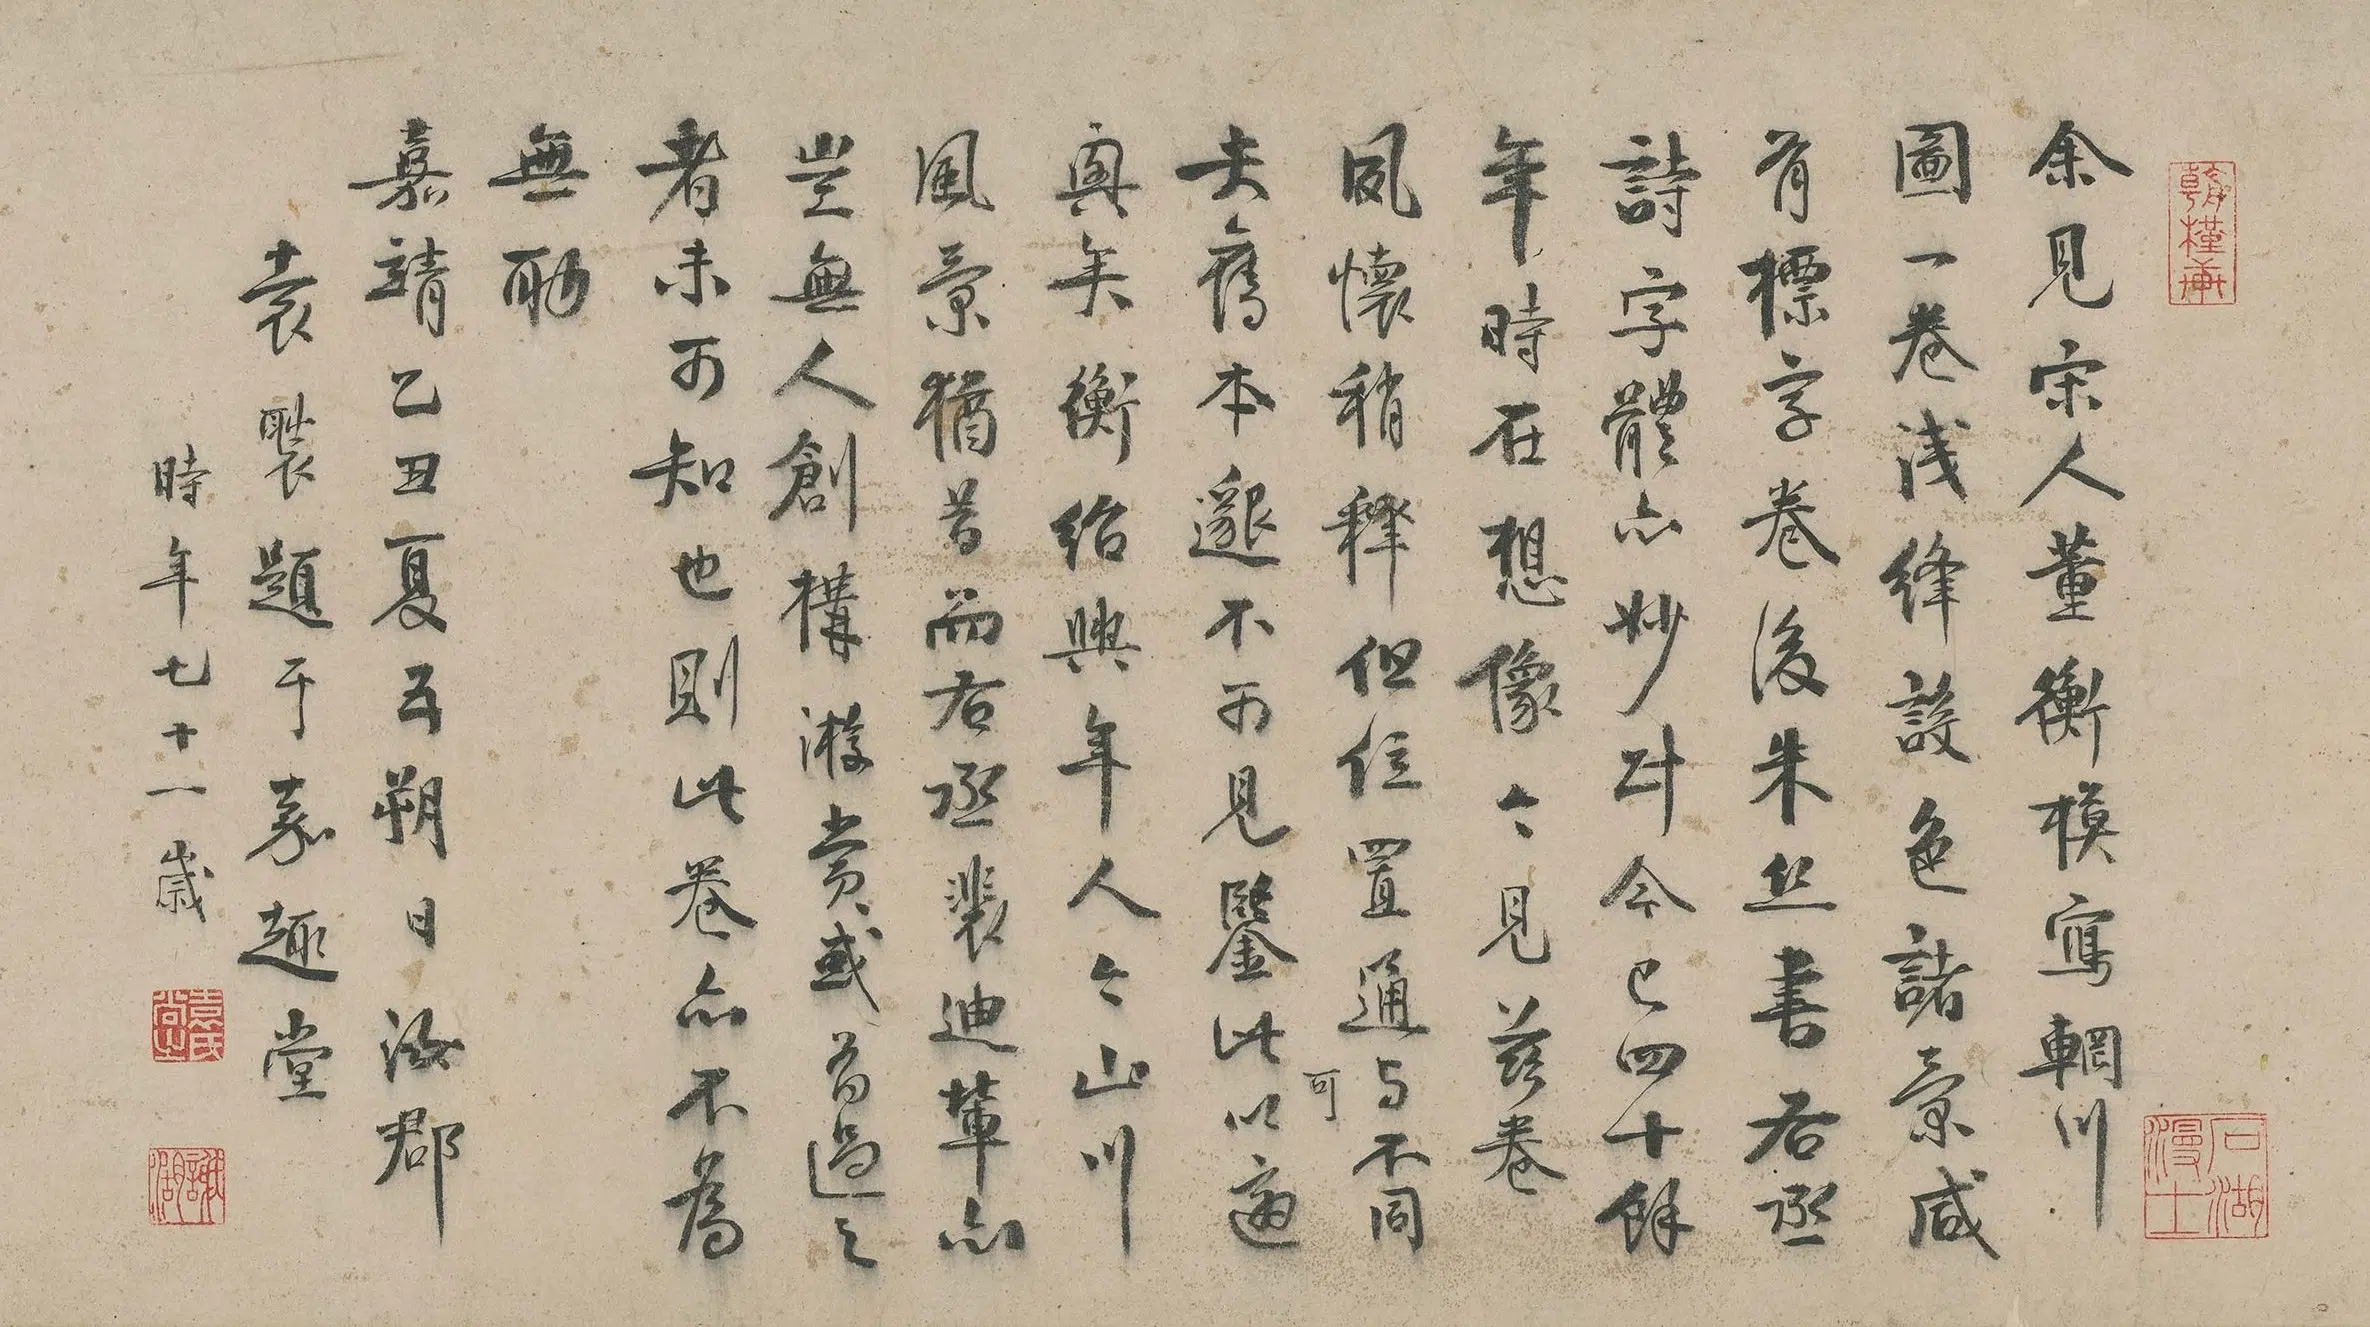 余見宋人董衡模寫輞川
圖一卷浅絳設色諸景咸
有標字卷後朱丝書右丞
詩字體亦妙計今已四十餘
年時在想像今見茲卷
夙懷稍释但位置通与不同
可
夫舊本邈不可見鑒此以適
興矣衡绍興年人今山川
風景猶昔而右丞裴迪輩亦
豈無人創構游賞或有過之
者未可知也則此卷亦不為
無助
嘉靖乙丑夏五朔日汝郡
袁褧題于嘉趣堂
時年七十一歲
石湖漫士
袁氏尚之
謝湖